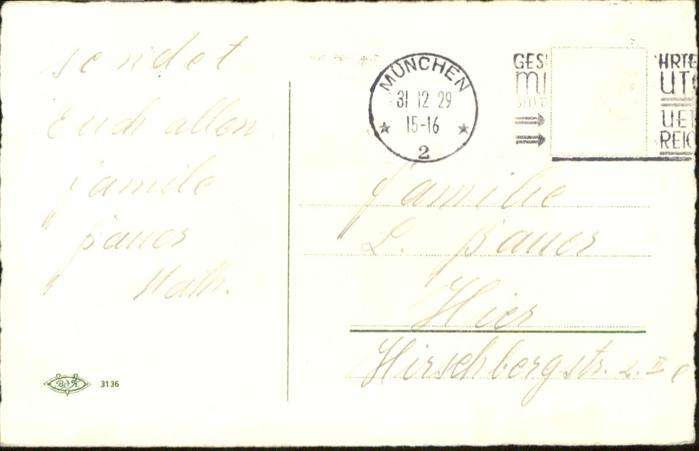 sendet
Euch allen
Familie
Bauer
Math.
MÜNCHEN
31 12 29
15-16
2
GES
MI
HRTE
UT
UEB
REIC
Familie
L. Bauer
Hier
Hirschbergstr. 2. II
3136